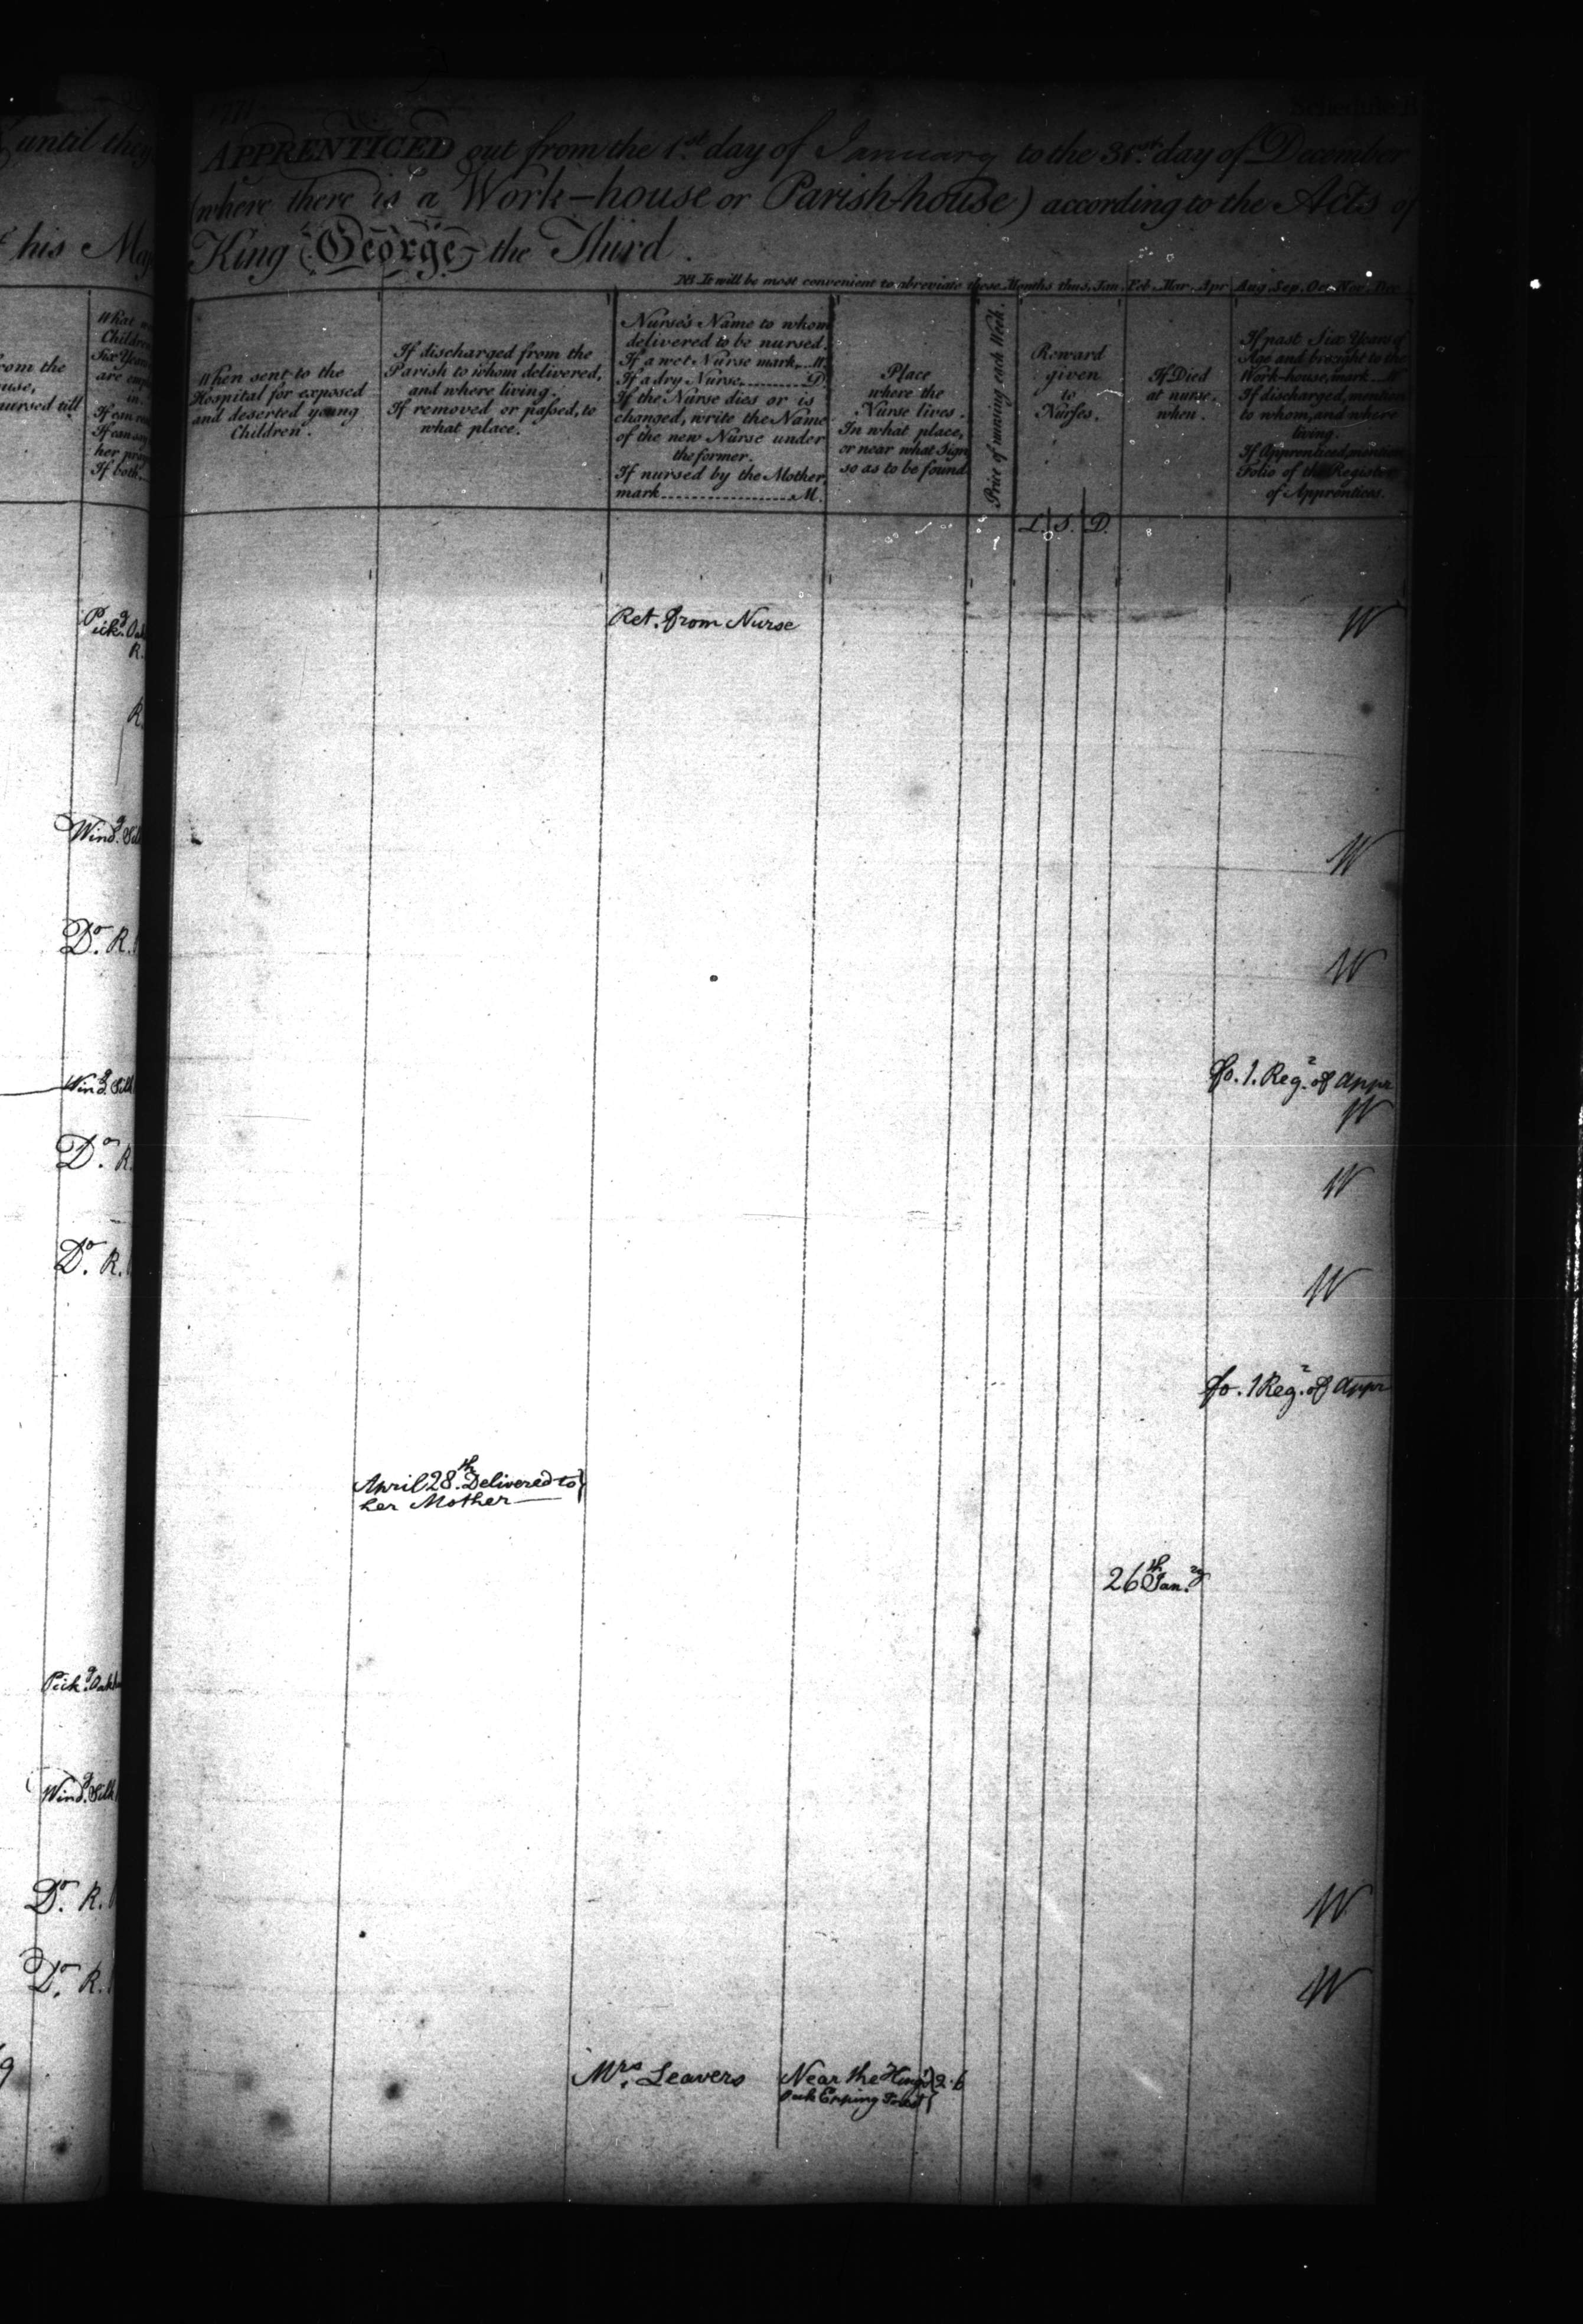 Schedule
until they
his
APPRENTICED out from the 1st. day of January to the 31st. day of December
(where there is a Work-house or Parish-house) according to the Acts of
King George the Third.
NB. It will be most convenient to abreviate these Months thus, Jan. Feb. Mar. Apr. Aug. Sep. Oct. Nov. Dec.
from the
nursed till
What
Six Years
are
in.
If both
When sent to the
Hospital for exposed
and deserted young
Children.
If discharged from the
Parish to whom delivered,
and where living.
If removed or passed, to
what place.
Nurse's Name to whom
delivered to be nursed.
If a wet Nurse mark...W.
If a dry Nurse..........D.
If the Nurse dies or is
changed, write the Name
of the new Nurse under
the former.
If nursed by the Mother,
mark..................M.
Place
where the
Nurse lives.
In what place,
or near what Sign
so as to be found.
Price of nursing each Week.
Reward
given
to
Nurses.
L. S. D.
If Died
at nurse.
when.
If past Six Years of
Age and brought to the
Work-house, mark...W
If discharged, mention
to whom, and where
living.
If Apprenticed, mention
Folio of the Register
of Apprentices.
Pickg.
R.
Ret. from Nurse
W
R.
Windg. Silk
W
Do. R.
W
Windg. Silk
fo. 1. Regr. of Appr
W
Do. R.
W
Do. R.
W
fo. 1 Regr. of Appr
April 28th. Delivered to
her Mother
26th Janry
Pickg.
Windg. Silk
Do. R.
W
Do. R.
W
9
Mrs. Leavers
Near the King's 2.6
Oak Epping Forest